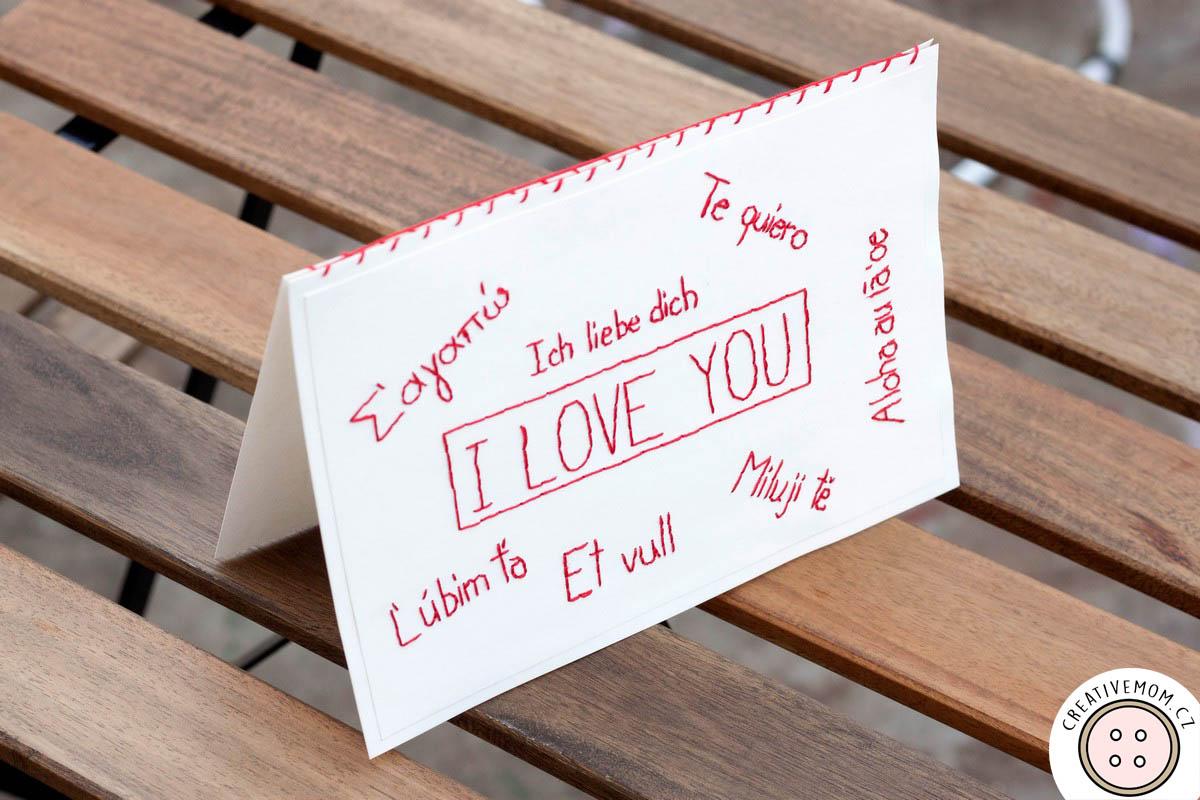 Te quiero
Σ'αγαπώ
Ich liebe dich
Aloha au iā 'oe
I LOVE YOU
Miluji tě
Ľúbim ťa
Et vull
CREATIVEMOM.CZ